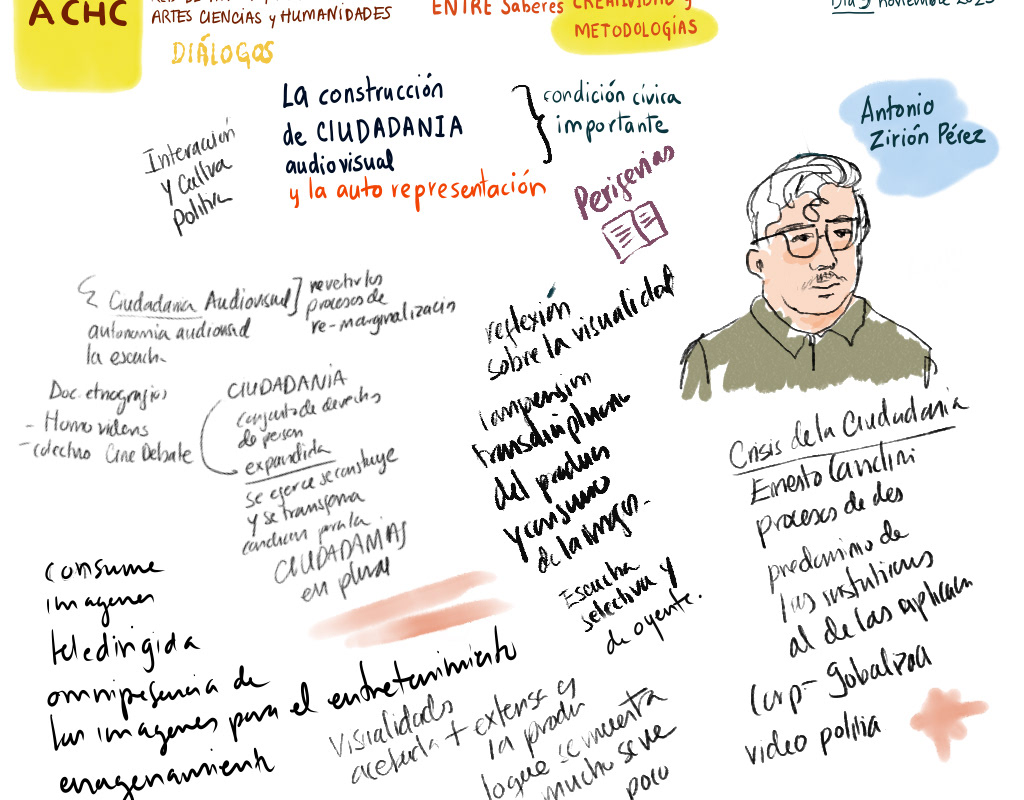 ACHC
ARTES CIENCIAS y HUMANIDADES
DIÁLOGOS
ENTRE Saberes CREATIVIDAD y
METODOLOGÍAS
Día 9 noviembre 2023
La construcción
de CIUDADANIA
audiovisual
y la auto representación
condición cívica
importante
Interacción
y Cultura
Política
Antonio
Zirión Pérez
Ciudadania Audiovisual
autonomia audiovisual
la escucha
procesos de
re-marginalización
Doc. etnografico
- Homo videns
- colectivo Cine Debate
CIUDADANÍA
conjunto de derechos
de person
expandida
se ejerce se construye
y se transforma
para la
CIUDADANIAS
en plural
reflexión
sobre la visualidad
transdisciplinaria
del
y consumo
de
Escucha
selectiva y
de oyente.
Crisis de la Ciudadania
Ernesto
procesos de des
predominio de
las
al de las
video politica
consume
imagenes
teledirigida
omnipresencia de
las imagenes para el entretenimiento
enagenamiento
Visialidades
+ extensa es
la
lo que se muestra
mucho se ve
poco